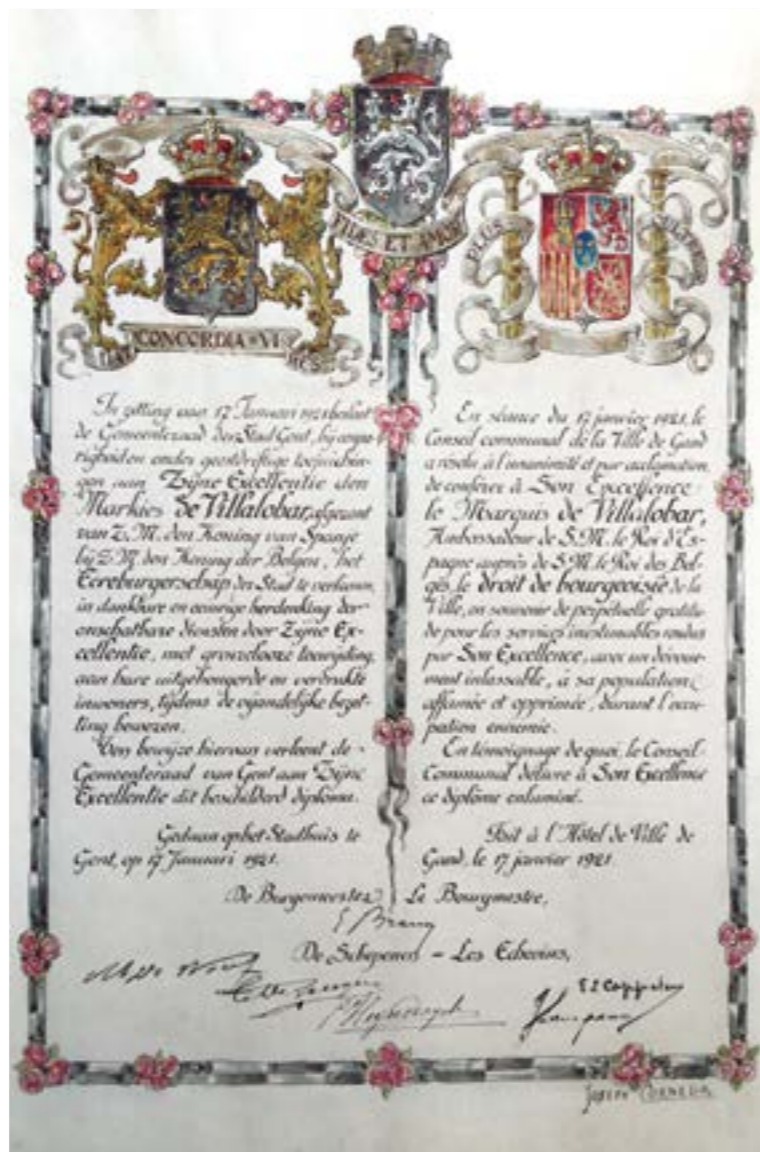 FIDES ET AMOR
PLUS ULTRA
CONCORDIA VI
RES
In zitting van 17 Januari 1921 besluit
de Gemeenteraad der Stad Gent, bij
en onder geestdriftige toejuichin-
gen aan Zijne Excellentie den
Markies de Villalobar, afgezant
van Z.M. den Koning van Spanje
bij Z.M. den Koning der Belgen, het
Eereburgerschap der Stad te verleenen,
in dankbare en eeuwige herdenking der
onschatbare diensten door Zijne Ex-
cellentie, met grenzelooze toewijding,
aan hare uitgehongerde en verdrukte
inwoners, tijdens de vijandelijke bezet-
ting bewezen.
Ten bewijze hiervan verleent de
Gemeenteraad van Gent aan Zijne
Excellentie dit beschilderd diploma.
Gedaan op het Stadhuis te
Gent, op 17 Januari 1921.
De Burgemeester
En séance du 17 janvier 1921, le
Conseil communal de la Ville de Gand
a résolu, à l'unanimité et par acclamation,
de conférer à Son Excellence
le Marquis de Villalobar,
Ambassadeur de S.M. le Roi d'Es-
pagne auprès de S.M. le Roi des Bel-
ges, le droit de bourgeoisie de la
Ville, en souvenir de perpétuelle gratitu-
de pour les services inestimables rendus
par Son Excellence, avec un dévoue-
ment inlassable, à sa population
affamée et opprimée, durant l'occu-
pation ennemie.
En témoignage de quoi, le Conseil
Communal délivre à Son Excellence
ce diplôme enluminé.
Fait à l'Hôtel de Ville de
Gand, le 17 janvier 1921
Le Bourgmestre,
E Braun
De Schepenen – Les Echevins,
Joseph Cornelis